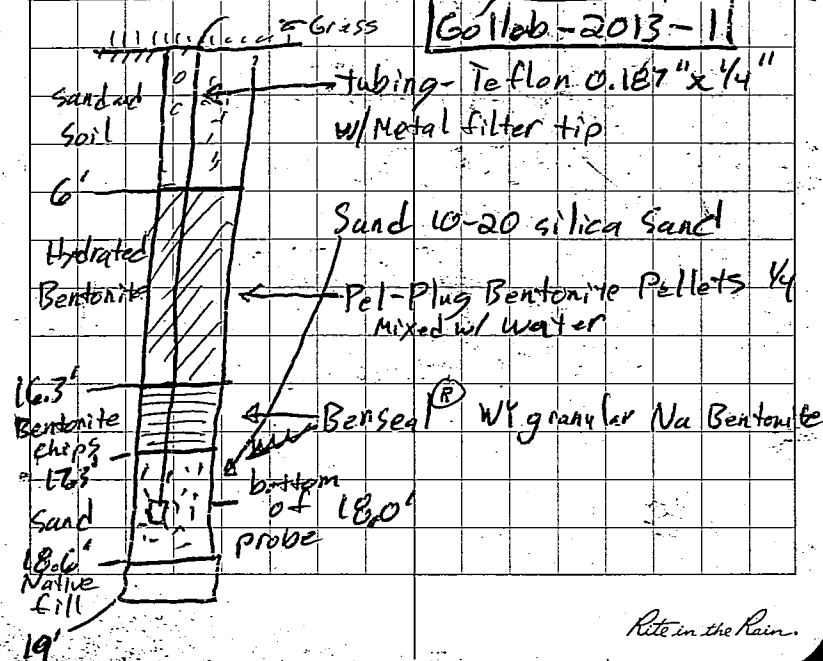 Grass
Gollab-2013-1
tubing- Teflon 0.187"x 1/4"
w/Metal filter tip
Sand and
Soil
6'
Sand 10-20 silica Sand
Hydrated
Bentonite
Pel-Plug Bentonite Pellets 1/4
Mixed w/ Water
16.3'
Bentonite
chips
Benseal® WY granular Na Bentonite
17.3'
Sand
bottom
of 18.0'
probe
18.6'
Native
fill
19'
Rite in the Rain.